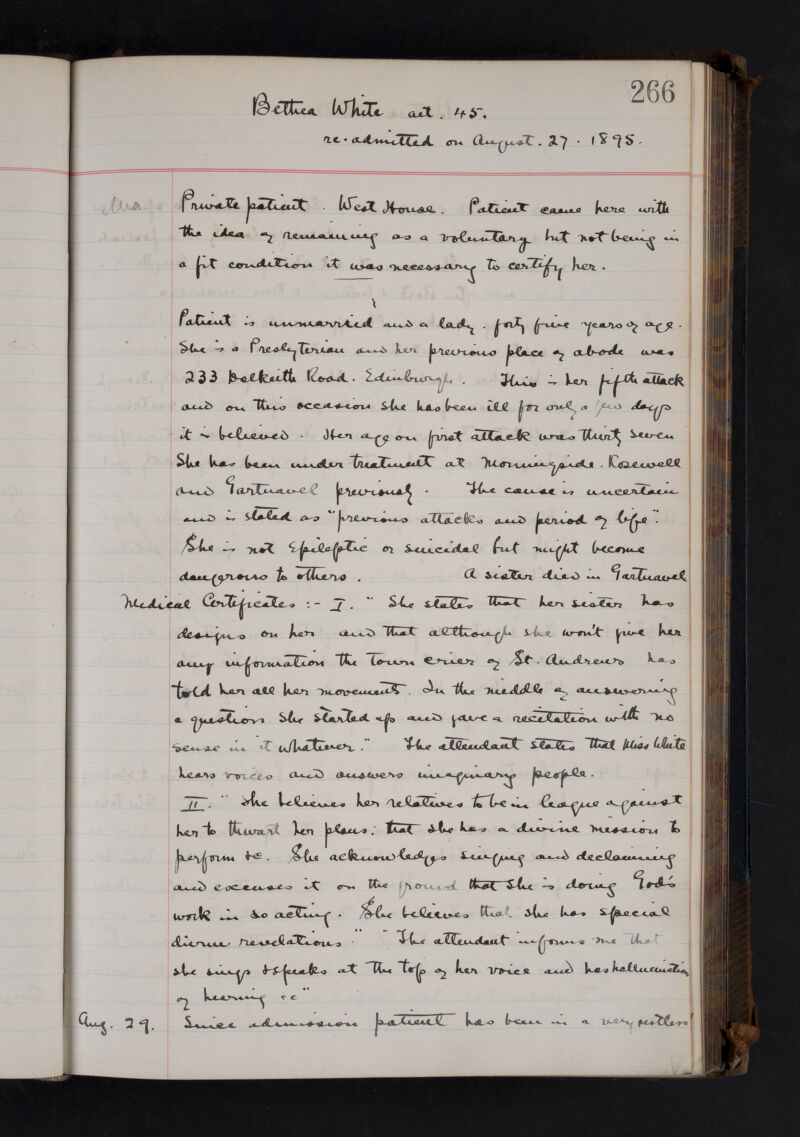 266
Bethea White aet. 45.
re-admitted on August. 27. 1895.
Private patient. West House. Patient came here with
the idea of remaining as a voluntary but not being in
a fit condition it was necessary to certify her.
Patient is unmarried and a lady. forty five years of age.
She is a Presbyterian and her previous place of abode was
233 Dalkeith Road. Edinburgh. This is her fifth attack
and on this occasion she has been ill for only a few days
it is believed. Her age on first attack was thirty seven
She has been under treatment at Morningside. Rosewell
and Gartnavel previously. The cause is uncertain
and is stated as "previous attacks and period of life".
She is not Epileptic or suicidal but might become
dangerous to others. A sister died in Gartnavel
Medical Certificates :- I. "She states that her sister has
designs on her and that although she won't give her
any information the town crier of St. Andrews has
told her all her movements. In the middle of answering
a question she started up and gave a recitation with no
sense in it whatever." The attendant states that Miss White
hears voices and answers imaginary people.
II. "She believes her relatives to be in league against
her to thwart her plans: that she has a divine mission to
perform &c. She acknowledges singing and declaiming
and excuses it on the ground that she is doing God's
work in so acting. She believes that she has special
divine revelations." "The attendant informs me that
she sings & speaks at the top of her voice and has hallucinations
of hearing &c"
Aug. 29. Since admission patient has been in a very restless